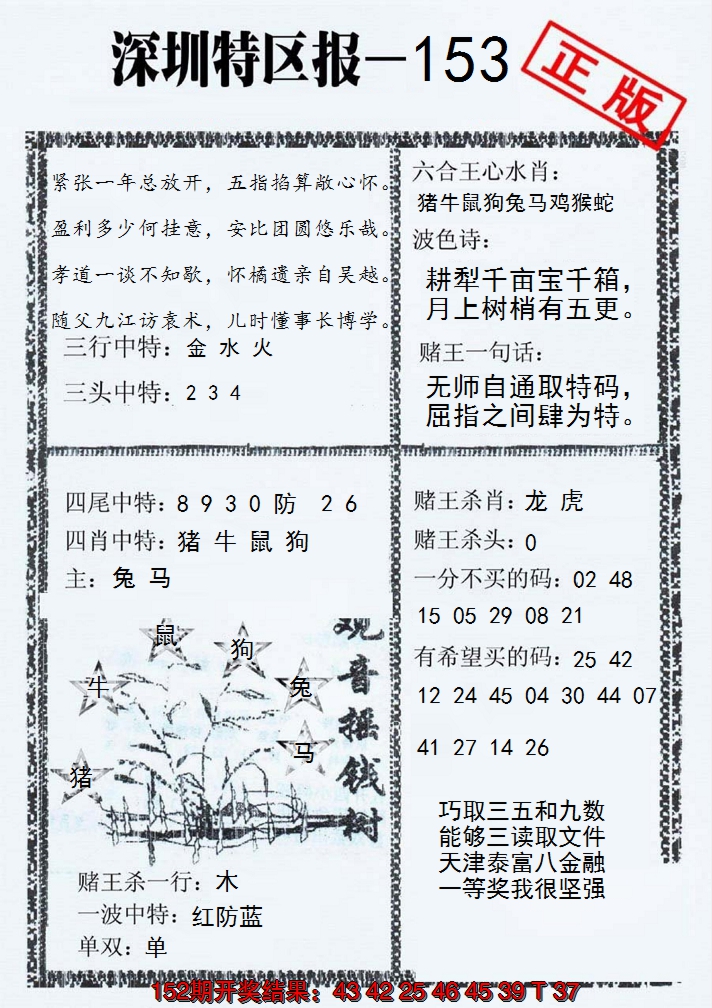 深圳特区报—153
正版
紧张一年总放开，五指掐算敞心怀。
盈利多少何挂意，安比团圆悠乐哉。
孝道一谈不知歇，怀橘遗亲自吴越。
随父九江访袁术，儿时懂事长博学。
三行中特：金 水 火
三头中特：2 3 4
六合王心水肖：
猪牛鼠狗兔马鸡猴蛇
波色诗：
耕犁千亩宝千箱，
月上树梢有五更。
赌王一句话：
无师自通取特码，
屈指之间肆为特。
四尾中特：8 9 3 0 防 2 6
四肖中特：猪 牛 鼠 狗
主：兔 马
观音摇钱树
鼠
狗
牛
兔
马
猪
赌王杀一行：木
一波中特：红防蓝
单双：单
赌王杀肖：龙 虎
赌王杀头：0
一分不买的码：02 48
15 05 29 08 21
有希望买的码：25 42
12 24 45 04 30 44 07
41 27 14 26
巧取三五和九数
能够三读取文件
天津泰富八金融
一等奖我很坚强
152期开奖结果：43 42 25 46 45 39 T 37